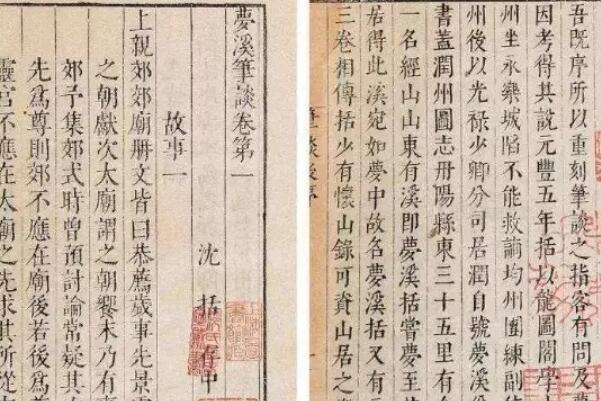 夢溪筆談卷第一
沈括存中
故事一
上親郊郊廟册文皆曰恭薦歲事先景
之朝獻次太廟謂之朝饗末乃有
郊予集郊式時曾預討論常疑其
先爲尊則郊不應在廟後若後爲
靈宮不應在太廟之先求其所從
吾既序所以重刻筆談之指客有問及
因考得其説元豐五年括以龍圖閣學
州坐永樂城陷不能救謫均州團練副
州後以光祿少卿分司居潤自號夢溪
書蓋潤州圖志丹陽縣東三十五里有
一名經山山東有溪即夢溪括嘗夢
居得此溪宛如夢中故名夢溪括又有
三卷相傳括少有懷山錄可資山居之